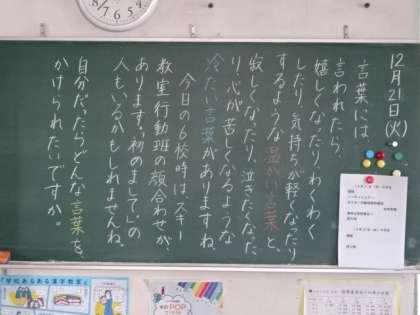 12月21日(火)
言葉には、
言われたら、
嬉しくなったり、わくわく
したり、気持ちが軽くなったり
するような温かい言葉と、
寂しくなったり、泣きたくなった
り、心が苦しくなるような
冷たい言葉がありますね。
今日の6校時は、スキー
教室行動班の顔合わせが
あります。“初めまして”の
人もいるかもしれませんね。
自分だったらどんな言葉を、
かけられたいですか。
学校あるある漢字教室
POP